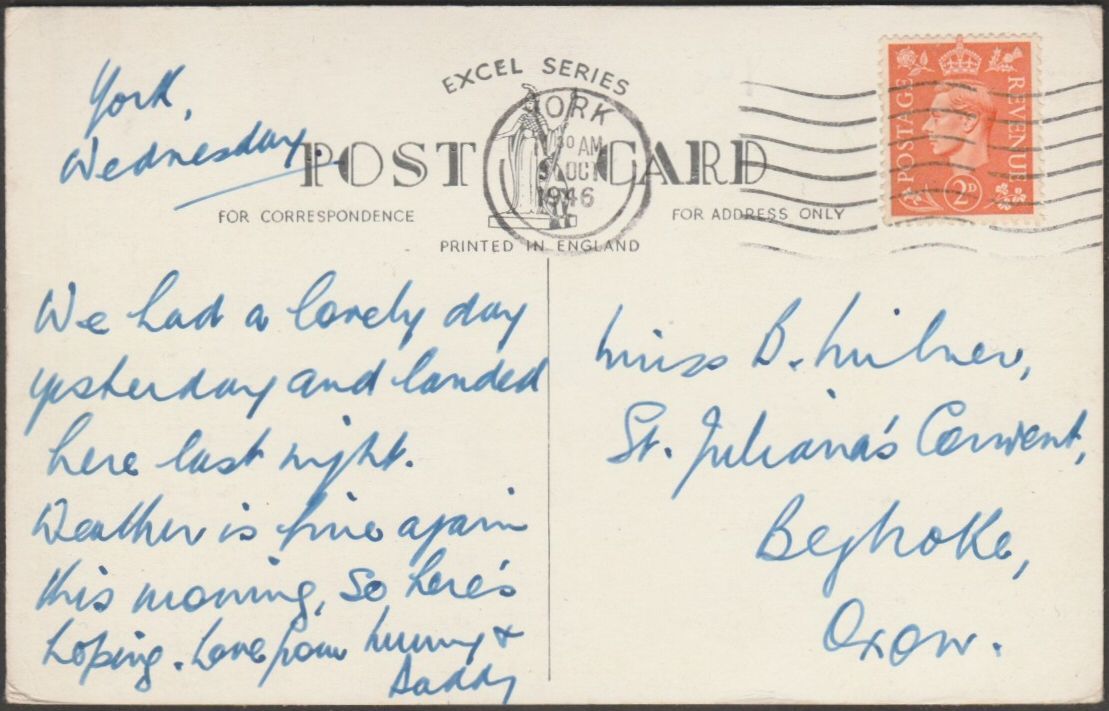 York,
Wednesday.
EXCEL SERIES
POST CARD
FOR CORRESPONDENCE
FOR ADDRESS ONLY
PRINTED IN ENGLAND
YORK
30 AM
OCT
1946
POSTAGE
REVENUE
2D
We had a lovely day
yesterday and landed
here last night.
Weather is fine again
this morning, So, here's
hoping. Love from Mummy &
Daddy
Miss B. Milner,
St. Juliana's Convent,
Begbroke,
Oxon.